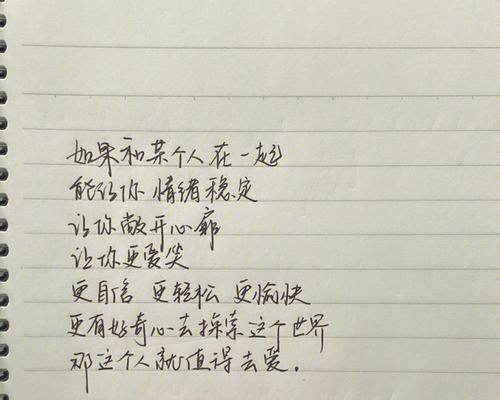 如果和某个人在一起
能让你情绪稳定
让你敞开心廓
让你更爱笑
更自信 更轻松 更愉快
更有好奇心去探索这个世界
那这个人就值得去爱.